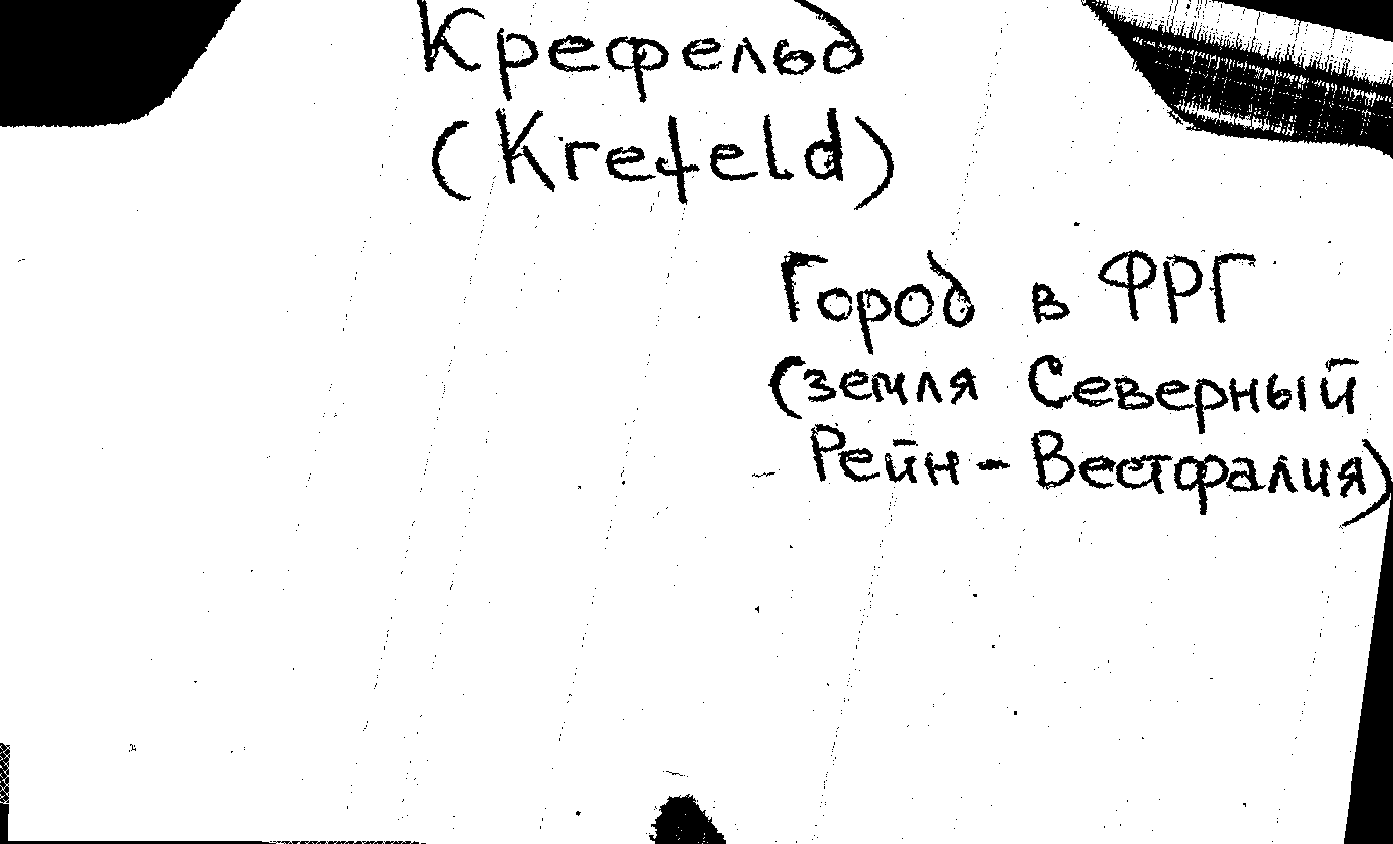 Крефельд
(Krefeld)
Город в ФРГ
(земля Северный
Рейн - Вестфалия)